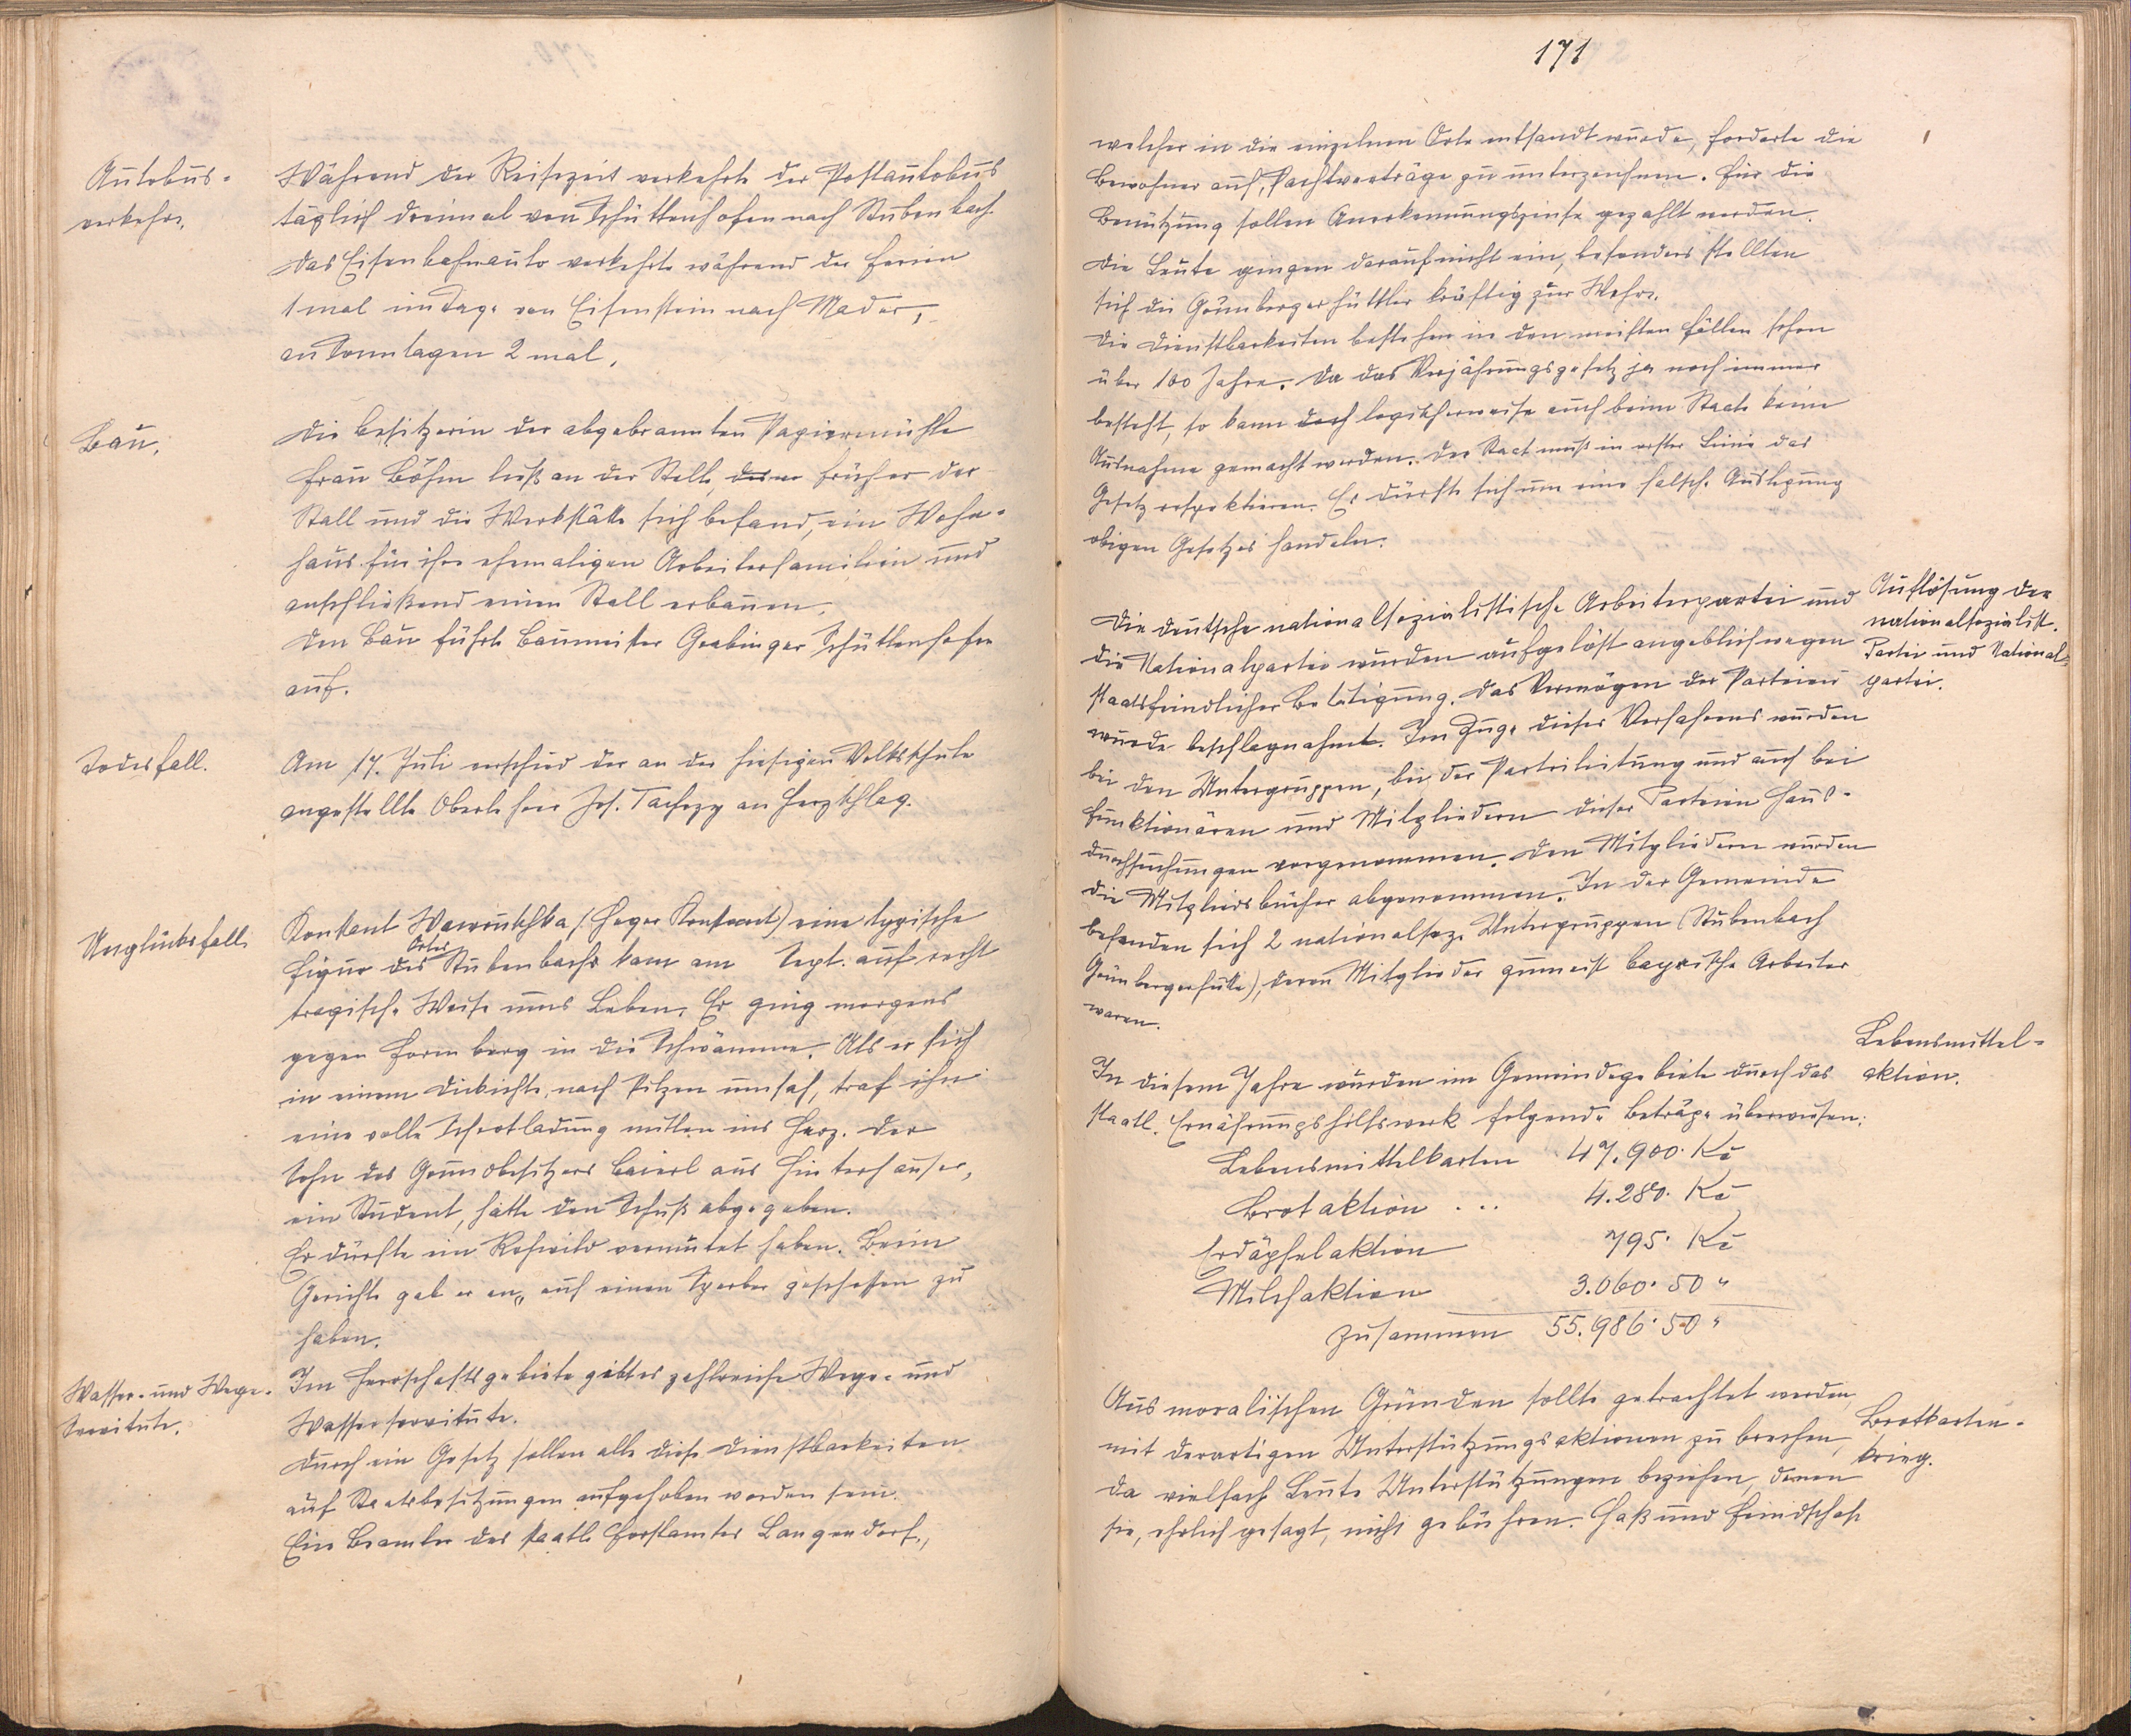 Autobus-
verkehr.
Während der Reisezeit verkehrte der Postautobus
täglich dreimal von Schüttenhofen nach Stubenbach.
Das Eisenbahnauto verkehrte während der Ferien
1 mal im Tage von Eisenstein nach Mader,
an Sonntagen 2 mal.
Bau.
Die Besitzerin der abgebrannten Papiermühle
Frau Böhm ließ an der Stelle, früher der
Stall und die Werkstätte sich befand, ein Wohn-
haus für ihre ehemaligen Arbeiterfamilien und
anschließend einen Stall erbauen.
Den Bau führte Baumeister Grabinger Schüttenhofen
auf.
Todesfall.
Am 17. Juli verschied der an der hiesigen Volksschule
angestellte Oberlehrer Jos. Tachezy an Herzschlag.
Unglücksfall.
Konkant Wawruschka (Heger Konkant) eine typische
Figur des Ortes Stubenbachs kam am Sept. auf recht
tragische Weise ums Leben. Er ging morgens
gegen Formberg in die Schwämme. Als er sich
in einem Dickichte nach Pilzen umsah, traf ihn
eine volle Schrotladung mitten ins Herz. Der
Sohn des Grundbesitzers Baierl aus Hinterhäuser,
ein Student, hatte den Schuß abgegeben.
Er dürfte ein Rehwild vermutet haben. Beim
Gerichte gab er an, auf einen Sperber geschossen zu
haben.
Wasser- und Wege-
Servitute.
Im Herrschaftsgebiete gibt es zahlreiche Wege- und
Wasserservitute.
Durch ein Gesetz sollen alle diese Dienstbarkeiten
auf Staatsbesitzungen aufgehoben worden sein.
Ein Beamter des staatl. Forstamtes Langendorf,
171
welcher in die einzelnen Orte entsandt wurde, forderte die
Bewohner auf, Pachtverträge zu unterzeichnen. Für die
Benützung sollen Anerkennungszinse gezahlt werden.
Die Leute gingen darauf nicht ein, besonders stellten
sich die Grünbergerhüttler kräftig zur Wehr.
Die Dienstbarkeiten bestehen in den meisten Fällen schon
über 100 Jahre. Da das Verjährungsgesetz ja noch immer
besteht, so kann doch logischerweise auch beim Staate keine
Ausnahme gemacht werden. Der Staat muß in erster Linie das
Gesetz respektieren. Es dürfte sich um eine falsche Auslegung
obigen Gesetzes handeln.
Auflösung der
nationalsozialist.
Partei und National-
partei.
Die deutsche nationalsozialistische Arbeiterpartei und
die Nationalpartei wurden aufgelöst angeblich wegen
staatsfeindlicher Betätigung. Das Vermögen der Parteien
wurde beschlagnahmt. Im Zuge dieses Verfahrens wurden
bei den Untergruppen, bei der Parteileitung und auch bei
Funktionären und Mitgliedern dieser Parteien Haus-
durchsuchungen vorgenommen. Den Mitgliedern wurden
die Mitgliedsbücher abgenommen. In der Gemeinde
befanden sich 2 nationalsoz. Untergruppen (Stubenbach
Grünbergerhütte), deren Mitglieder zumeist bayrische Arbeiter
waren.
Lebensmittel-
aktion.
In diesem Jahre wurden im Gemeindegebiete durch das
staatl. Ernährungshilfswerk folgende Beträge überwiesen:
Lebensmittelkarten 47.900· Kč
Brotaktion ... 4.280· Kč
Erdäpfelaktion 795· Kč
Milchaktion 3.060·50 "
Zusammen 55.986·50 "
Brotkarten-
krieg.
Aus moralischen Gründen sollte getrachtet werden,
mit derartigen Unterstützungsaktionen zu brechen,
da vielfach Leute Unterstützungen beziehen, denen
sie, ehrlich gesagt, nicht gebühren. Haß und Feindschaft